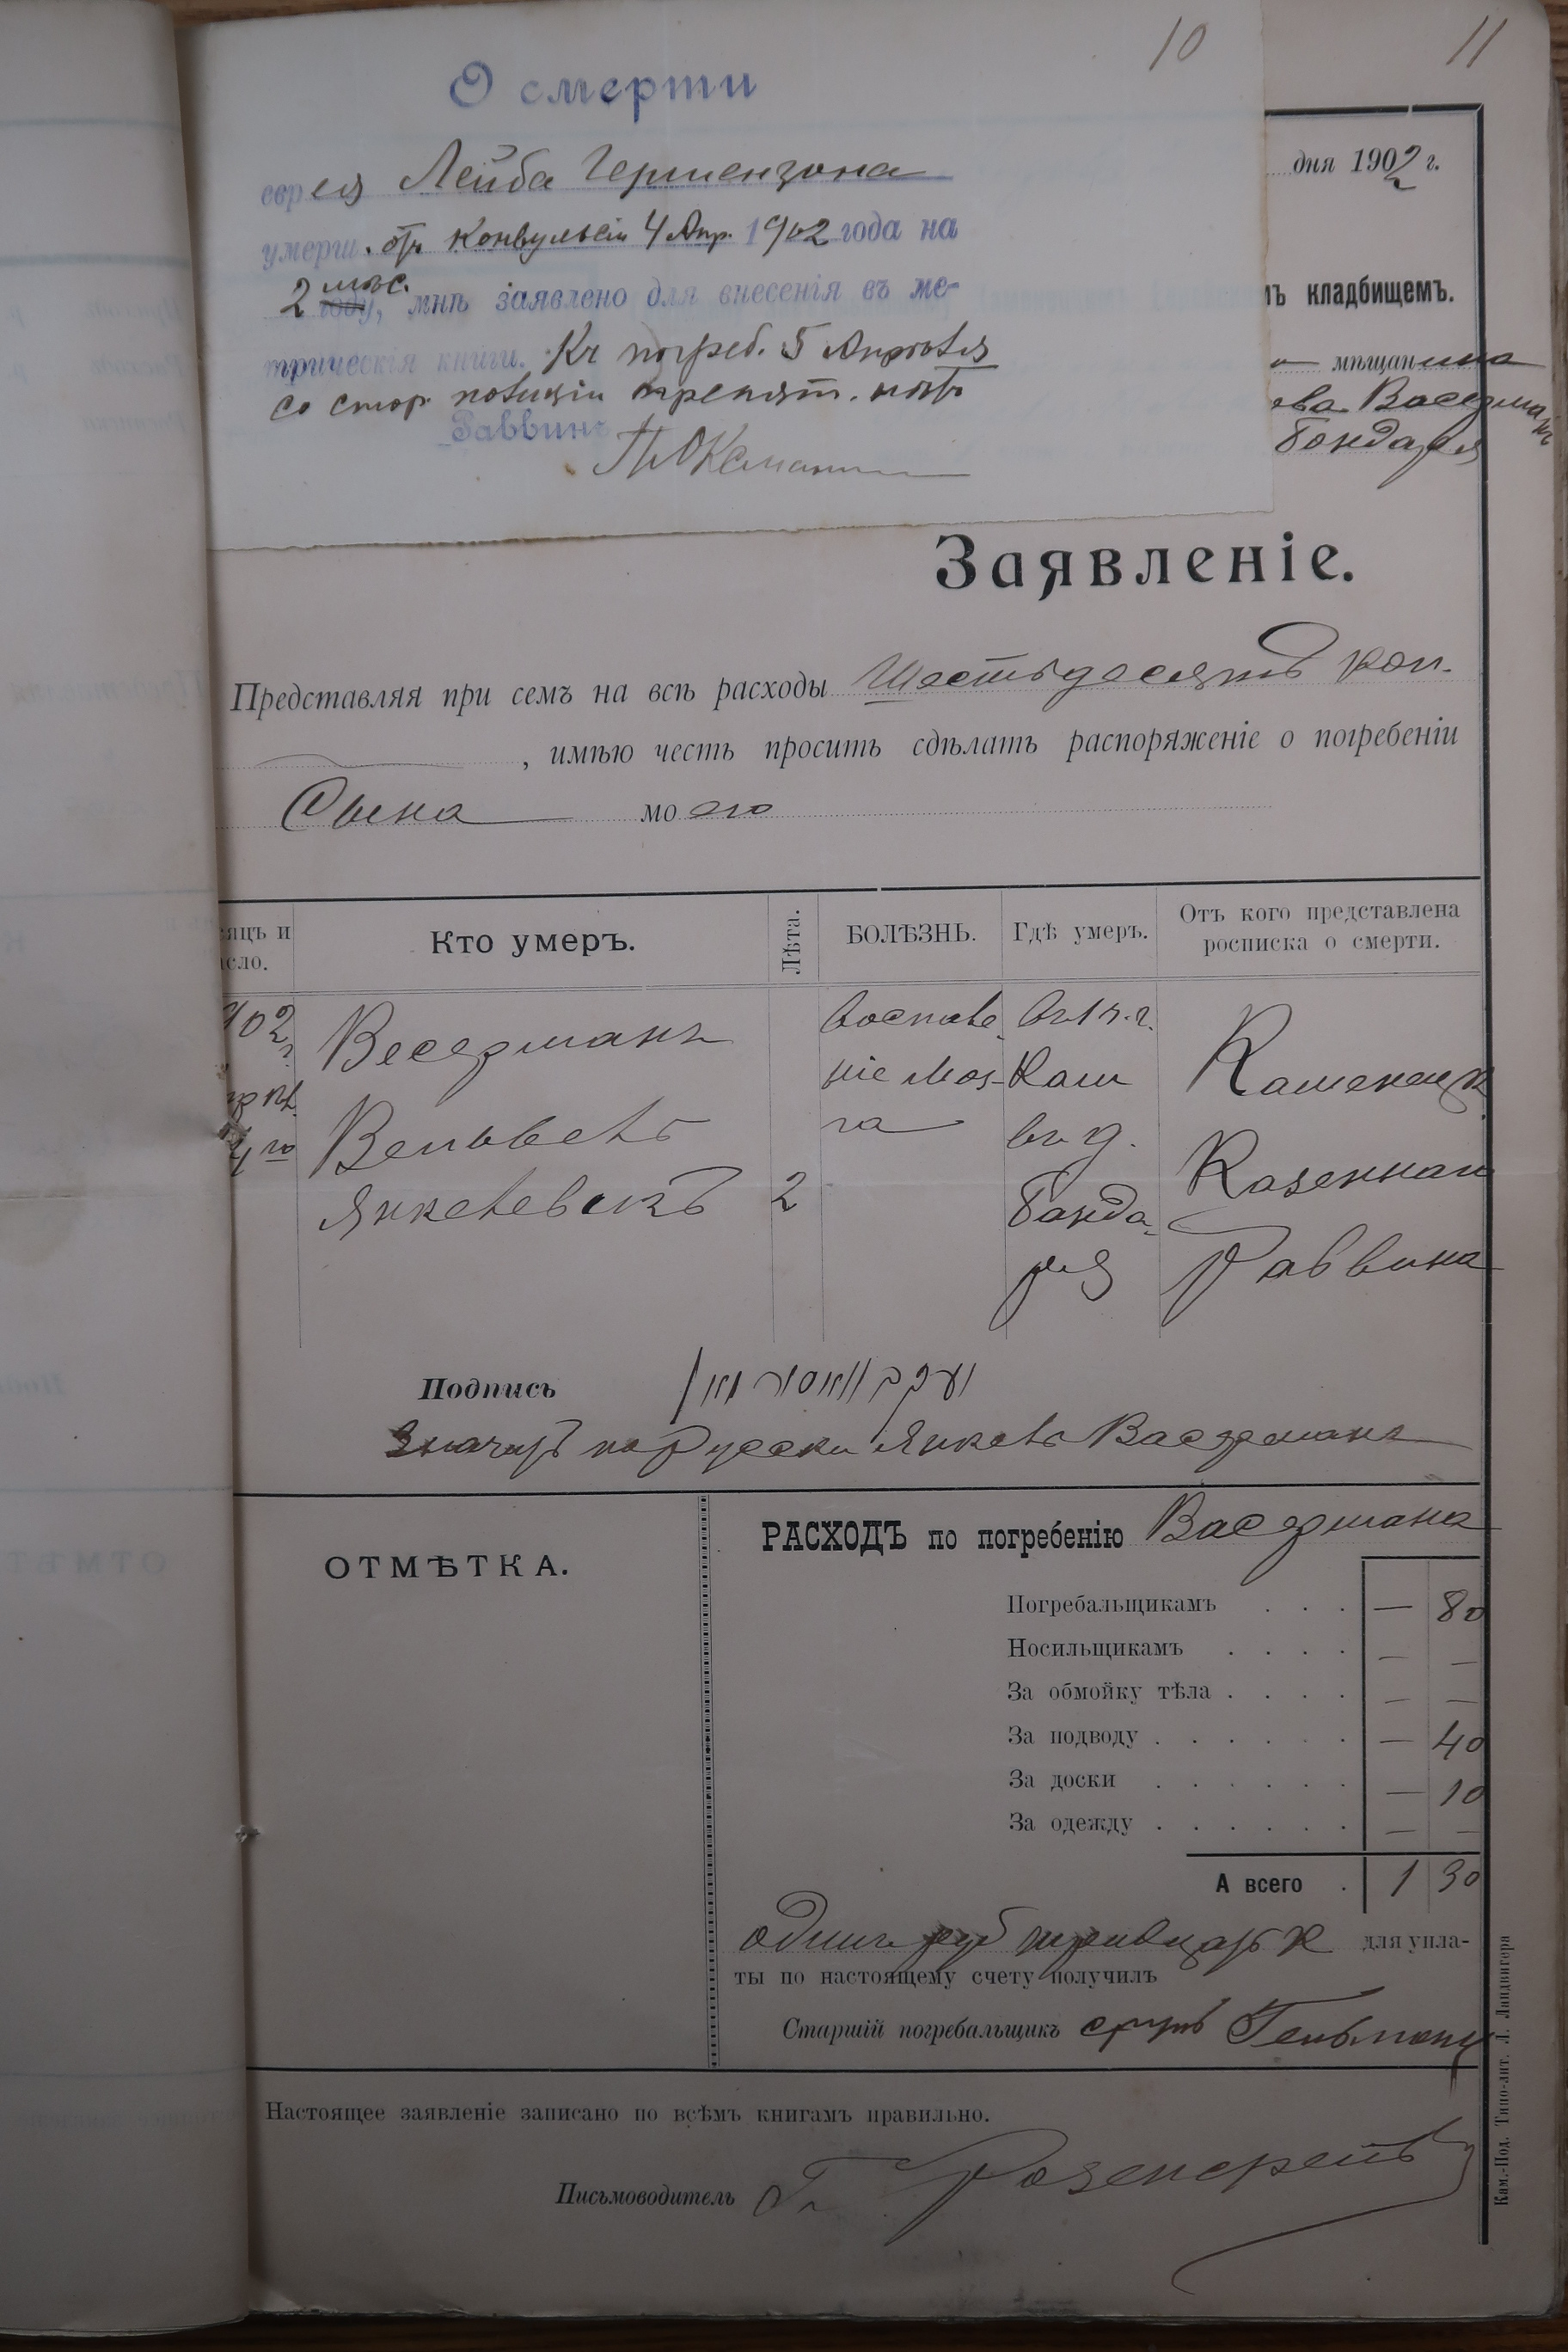 10
11
О смерти
еврея Лейба Гершензона
умерш. отъ конвульсіи 4 Апр. 1902 года на
2 мѣс. году, мнѣ заявлено для внесенія въ ме-
трическія книги. Къ погреб. 5 Апрѣля
со стор. полиціи препят. нѣтъ
Раввинъ
дня 1902 г.
мъ кладбищемъ.
мѣщанина
ева Васермана
Бондаря
Заявленіе.
Представляя при семъ на всѣ расходы Шестьдесятъ коп.
, имѣю честь просить сдѣлать распоряженіе о погребеніи
Сына моего
яцъ и
сло.
Кто умеръ.
Лѣта.
БОЛѢЗНЬ.
Гдѣ умеръ.
Отъ кого представлена
росписка о смерти.
902 г.
4 го
Весерманъ
Вольвель
Янкелевъ
2
воспале-
ніе моз-
га
Кам
въ д.
Бонда-
ря
Каменецк
Казеннаго
Раввина
Подпись
Значитъ по Русски Янкель Васерманъ
ОТМѢТКА.
РАСХОДЪ по погребенію Васермана
Погребальщикамъ . . . — 80
Носильщикамъ . . . . — —
За обмойку тѣла . . . . — —
За подводу . . . . . . — 40
За доски . . . . . — 10
За одежду . . . . . . — —
А всего . 1 30
одинъ руб тридцать к для упла-
ты по настоящему счету получилъ
Старшій погребальщикъ Гельманъ
Настоящее заявленіе записано по всѣмъ книгамъ правильно.
Письмоводитель
Кам.-Под. Типо-лит. Л. Ландвигера